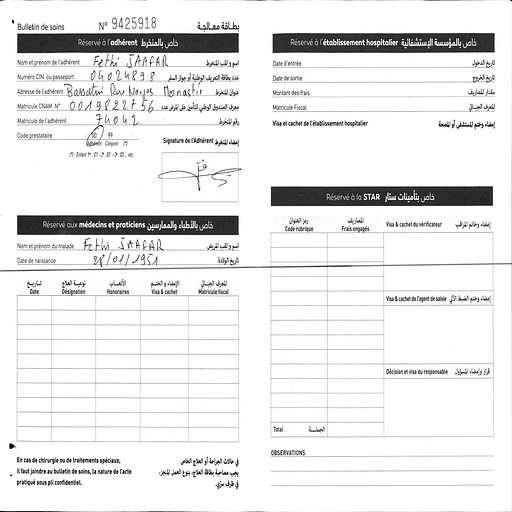 Bulletin de soins N° 9425918 بطاقة معالجة
Réservé à l'adhérent خاص بالمنخرط
Nom et prénom de l'adhérent Fethi JAAFAR اسم و لقب المنخرط
Numéro CIN ou passeport 04024898 عدد بطاقة التعريف الوطنية أو جواز السفر
Adresse de l'adhérent Rue Monastir عنوان المنخرط
Matricule CNAM N° 0019822756
Matricule de l'adhérent 74042 رقم المنخرط
Code prestataire 00 99
Adhérent Conjoint (*)
(*) : Enfant 1er : 01 - 2 : 02 - 3 : 03 .. etc
Signature de l'Adhérent إمضاء المنخرط
Réservé aux médecins et praticiens خاص بالأطباء والممارسين
Nom et prénom du malade Fethi JAAFAR اسم و لقب المريض
Date de naissance 28/01/1951 تاريخ الولادة
تاريخ نوعية العلاج الأتعاب الإمضاء و الختم المعرف الجبائي
Date Désignation Honoraires Visa & cachet Matricule fiscal
En cas de chirurgie ou de traitements spéciaux,
il faut joindre au bulletin de soins, la nature de l'acte
pratiqué sous pli confidentiel.
في حالات الجراحة أو العلاج الخاص
يجب مصاحبة بطاقة العلاج، بنوع العمل المنجز،
في ظرف سري.
Réservé à l'établissement hospitalier خاص بالمؤسسة الإستشفائية
Date d'entrée تاريخ الدخول
Date de sortie تاريخ الخروج
Montant des frais مقدار المصاريف
Matricule Fiscal المعرف الجبائي
Visa et cachet de l'établissement hospitalier إمضاء وختم المستشفى أو المصحة
Réservé à la STAR خاص بتأمينات ستار
رمز العنوان المصاريف
Code rubrique Frais engagés
Visa & cachet du vérificateur إمضاء وخاتم المراقب
Visa & cachet de l'agent de saisie إمضاء وختم الضبط الآلي
Décision et visa du responsable قرار وإمضاء المسؤول
Total الجملة
OBSERVATIONS